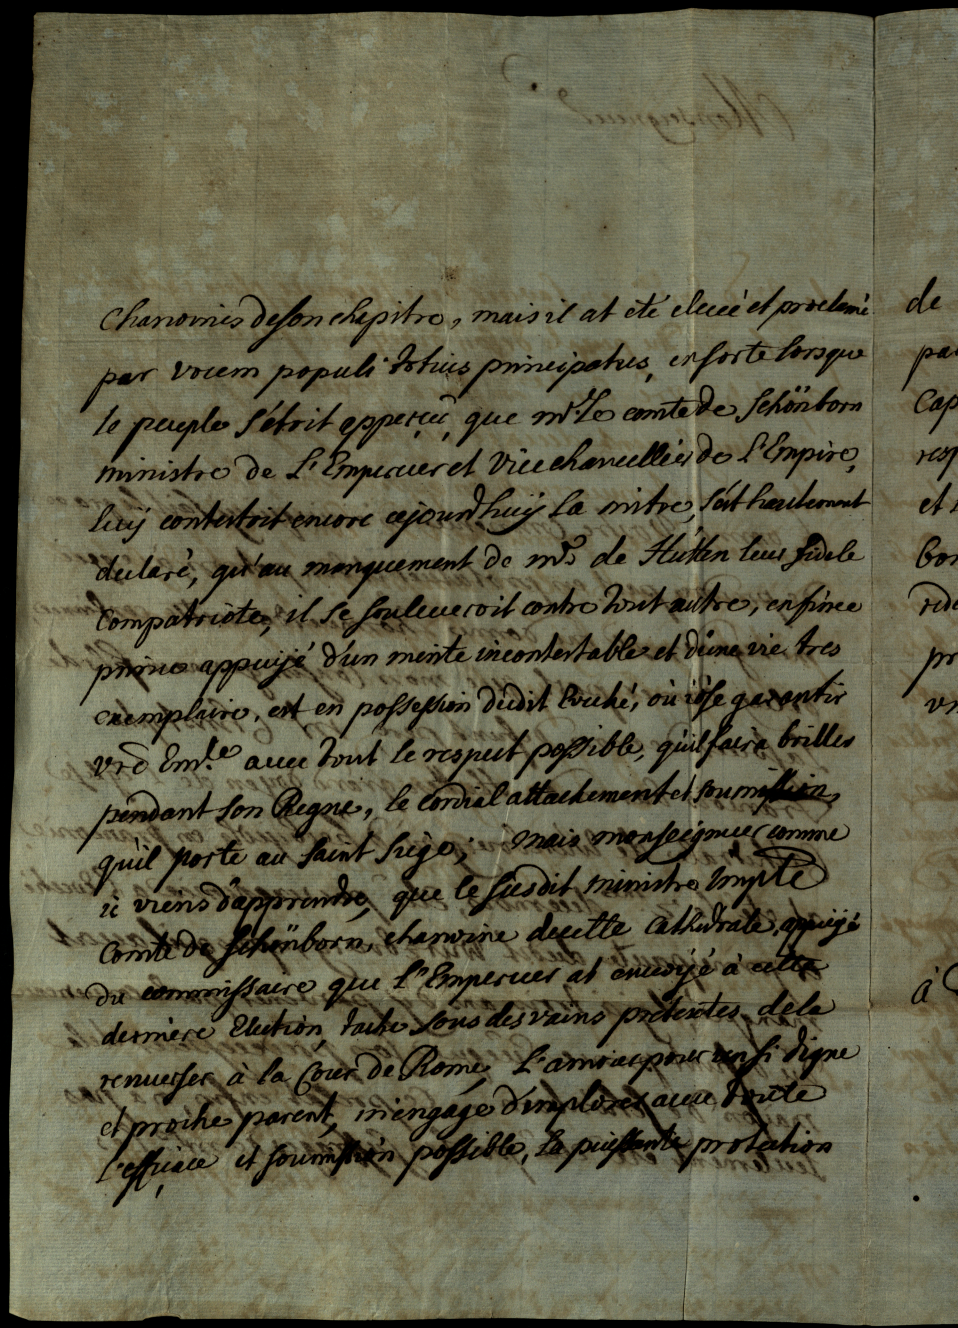 chanoines de son chapitre, mais il at été eleüé et proclamé
par vocem populi totius principatus, ensorte lorsque
le peuple s'étoit apperçû, que mr. Le comte de Schönborn
ministre de L'Empereur et Vice chancellier de L'Empire,
luÿ contestoit encore ajourd'huÿ la mitre, s'est hautement
declaré, qu'au manquement de mr. de Hutten leur fidele
compatriote, il se souleueroit contre tout autre, enfin ce
prince appuÿé d'un merite incontestable et d'une vie tres
exemplaire, est en possession dudit Eveché, où j'ose garantir
vre Em.ce auec tout le respect possible, qu'il faira briller
pendant son Regne, le cordial attachement et soumission,
qu'il porte au saint siège; mais monseigneur comme
je viens d'apprendre, que le susdit ministre
Comte de Schönborn, chanoine de cette Cathedrale, appuÿé
du commissaire que L'Empereur at enuoÿé à cette
derniere Election, tache sous des vains pretextes de la
renuerser à la Cour de Rome, L'amour pour un si digne
et proche parent, m'engage d'implorer auec toute
l'efficace et soumission possible, la puissante protection
de
à